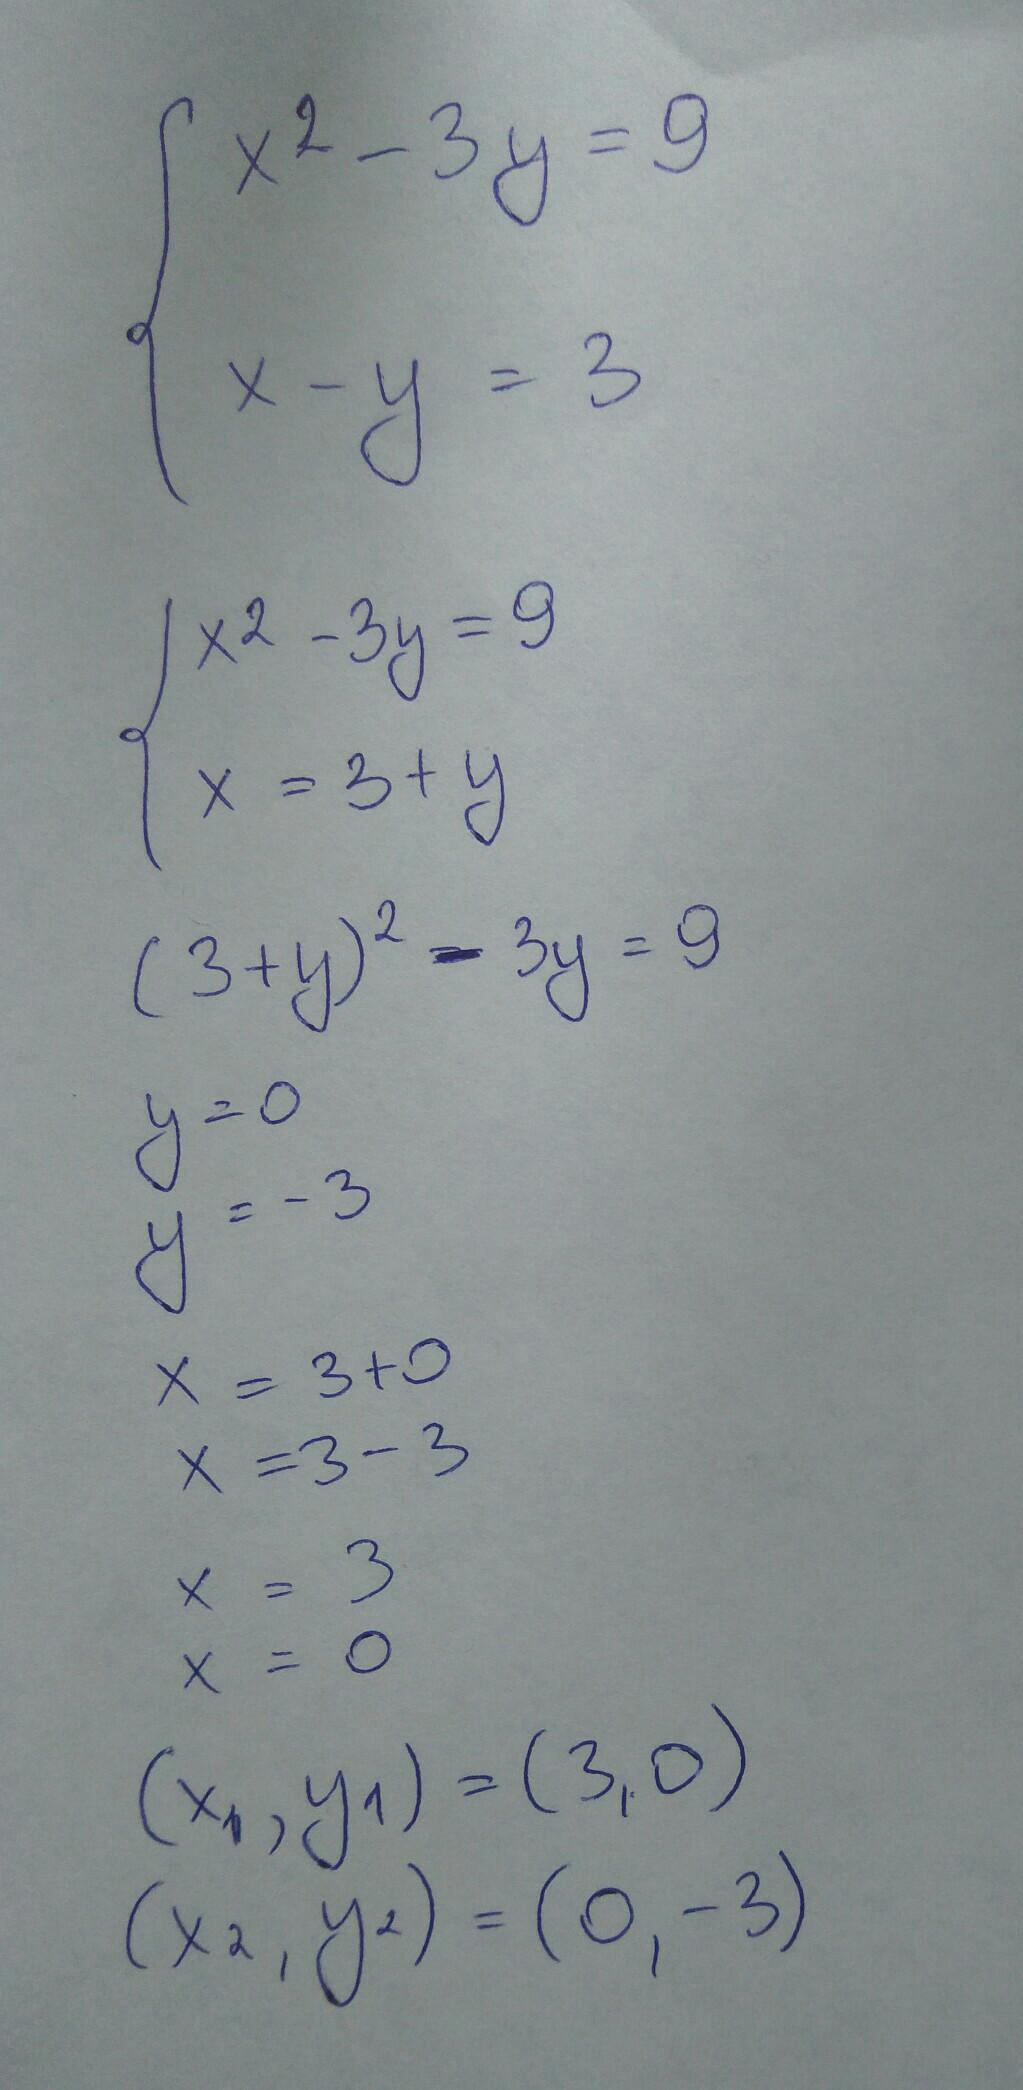 x² - 3y = 9
x - y = 3
x² - 3y = 9
x = 3 + y
(3+y)² - 3y = 9
y = 0
y = -3
x = 3+0
x = 3-3
x = 3
x = 0
(x₁, y₁) = (3,0)
(x₂, y₂) = (0,-3)